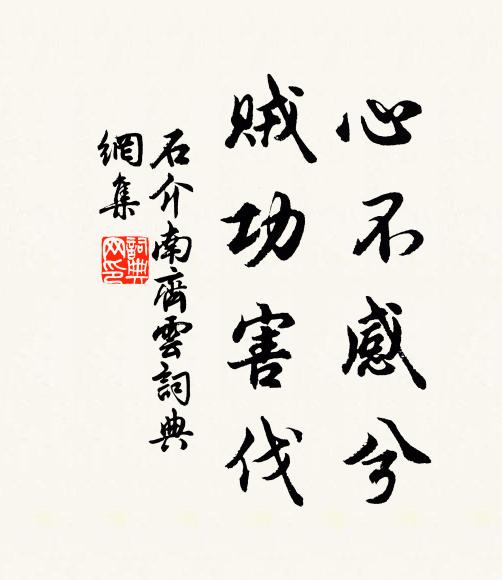 心不感兮
賊功害伐
石介南齊雲詞典
網集
詞典
网印